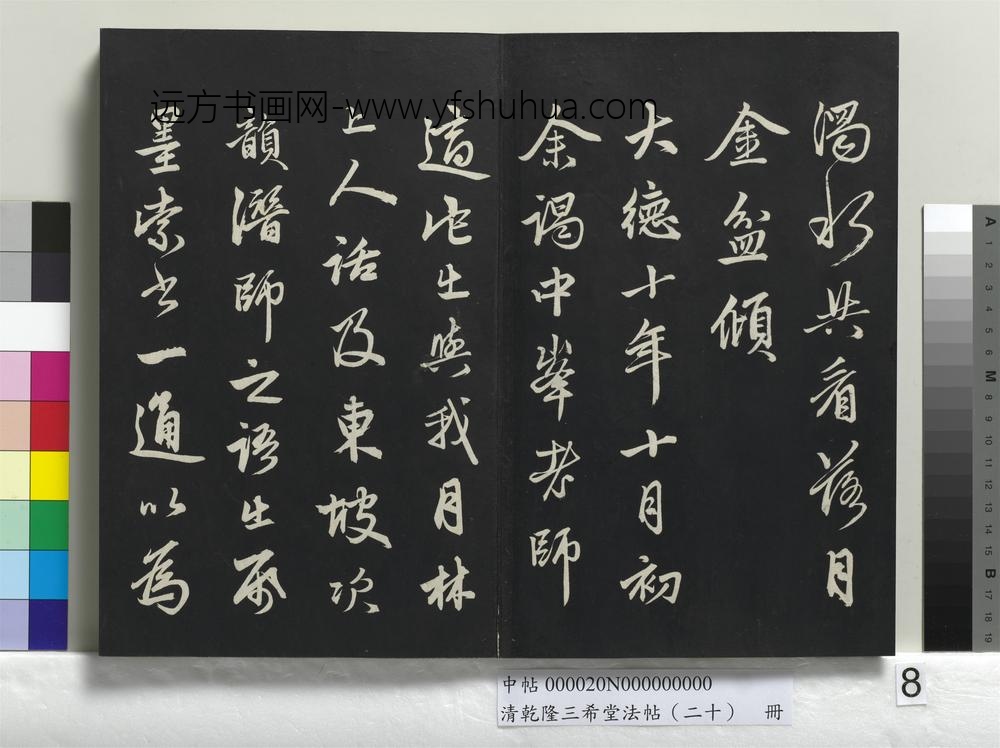 远方书画网-www.yfshuhua.com
濁水共看落月
金盆傾
大德十年十月初
余謁中峯老師
適佗出與我月林
上人話及東坡次
韻潛師之語出帋
墨索書一通以為
中帖 000020N000000000
清乾隆三希堂法帖（二十） 冊
8
A
1
2
3
4
5
6
M
8
9
10
11
12
13
14
15
B
17
18
19